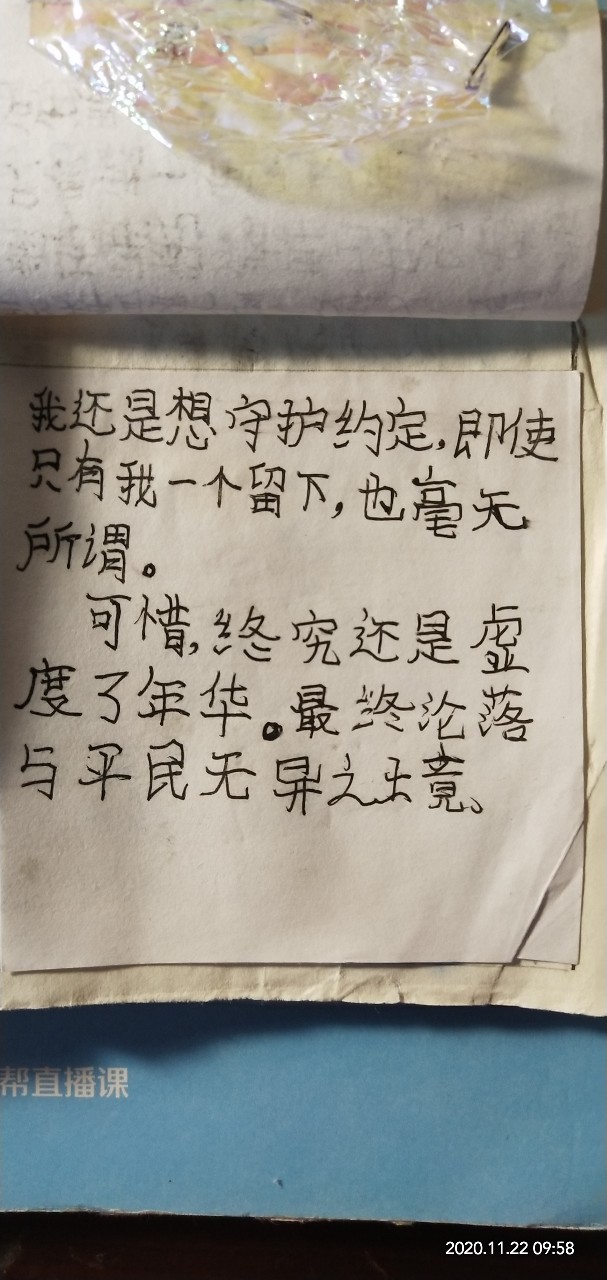 我还是想守护约定,即使
只有我一个留下,也毫无
所谓。
可惜,终究还是虚
度了年华。最终沦落
与平民无异之境、
帮直播课
2020.11.22 09:58